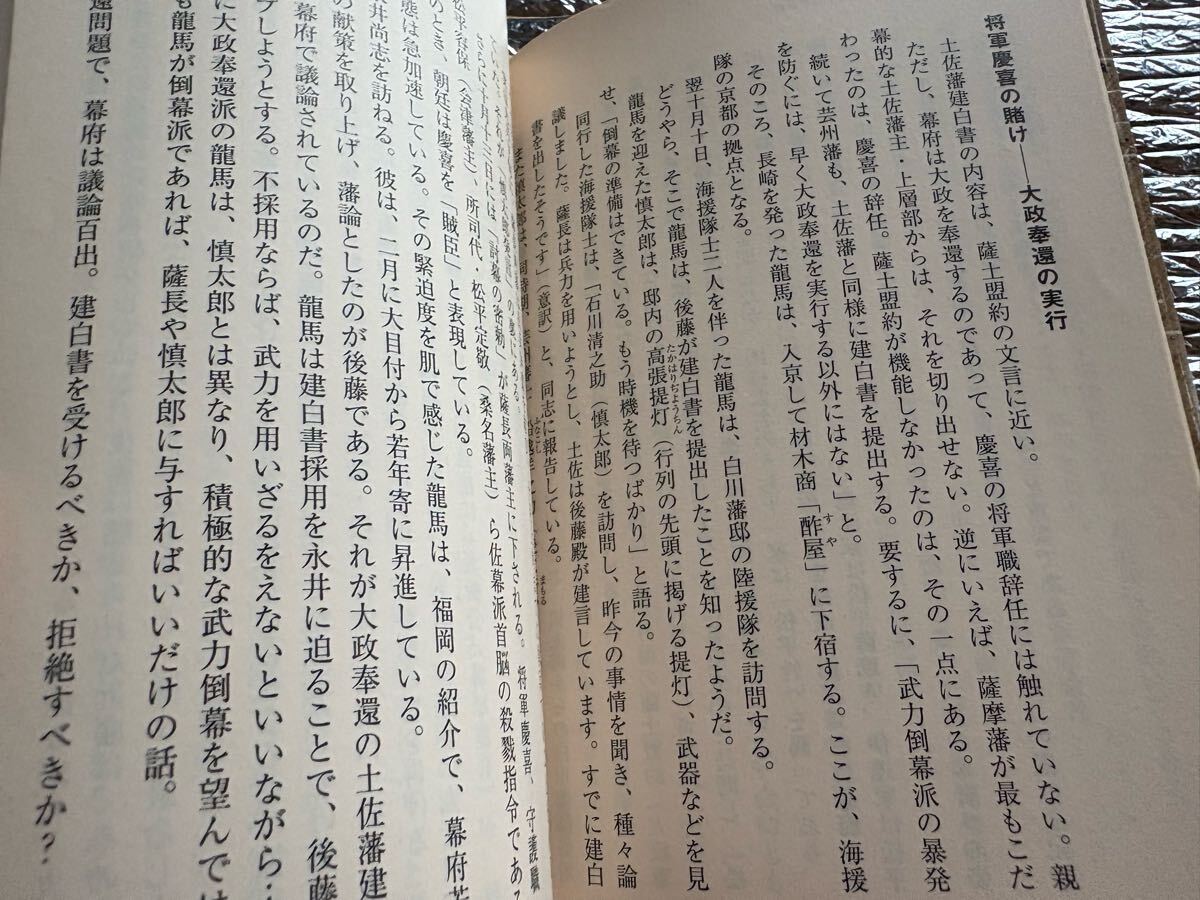 将軍慶喜の賭け――大政奉還の実行
土佐藩建白書の内容は、薩土盟約の文言に近い。
ただし、幕府は大政を奉還するのであって、慶喜の将軍職辞任には触れていない。親
幕的な土佐藩主・上層部からは、それを切り出せない。逆にいえば、薩摩藩が最もこだ
わったのは、慶喜の辞任。薩土盟約が機能しなかったのは、その一点にある。
続いて芸州藩も、土佐藩と同様に建白書を提出する。要するに、「武力倒幕派の暴発
を防ぐには、早く大政奉還を実行する以外にはない」と。
そのころ、長崎を発った龍馬は、入京して材木商「酢屋」に下宿する。ここが、海援
すや
隊の京都の拠点となる。
翌十月十日、海援隊士二人を伴った龍馬は、白川藩邸の陸援隊を訪問する。
どうやら、そこで龍馬は、後藤が建白書を提出したことを知ったようだ。
龍馬を迎えた慎太郎は、邸内の高張提灯(行列の先頭に掲げる提灯)、武器などを見
たかはりぢようちん
せ、「倒幕の準備はできている。もう時機を待つばかり」と語る。
同行した海援隊士は、「石川清之助(慎太郎)を訪問し、昨今の事情を聞き、種々論
議しました。薩長は兵力を用いようとし、土佐は後藤殿が建言しています。すでに建白
書を出したそうです」(意訳)と、同志に報告している。
まもる
さらに十月十三日には「討幕の密勅」が薩長両藩主に下される。将軍慶喜、守護職
松平容保(会津藩主)、所司代・松平定敬(桑名藩主)ら佐幕派首脳の殺戮指令である
のとき、朝廷は慶喜を「賊臣」と表現している。
態は急加速している。その緊迫度を肌で感じた龍馬は、福岡の紹介で、幕府若
井尚志を訪ねる。彼は、二月に大目付から若年寄に昇進している。
の献策を取り上げ、藩論としたのが後藤である。それが大政奉還の土佐藩建
幕府で議論されているのだ。龍馬は建白書採用を永井に迫ることで、後藤
プしようとする。不採用ならば、武力を用いざるをえないといいながら・
に大政奉還派の龍馬は、慎太郎とは異なり、積極的な武力倒幕を望んでは
も龍馬が倒幕派であれば、薩長や慎太郎に与すればいいだけの話。
還問題で、幕府は議論百出。建白書を受けるべきか、拒絶すべきか?